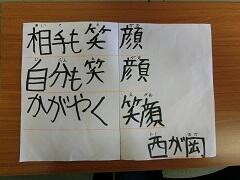 相手も笑顔
自分も笑顔
かがやく笑顔
西が岡